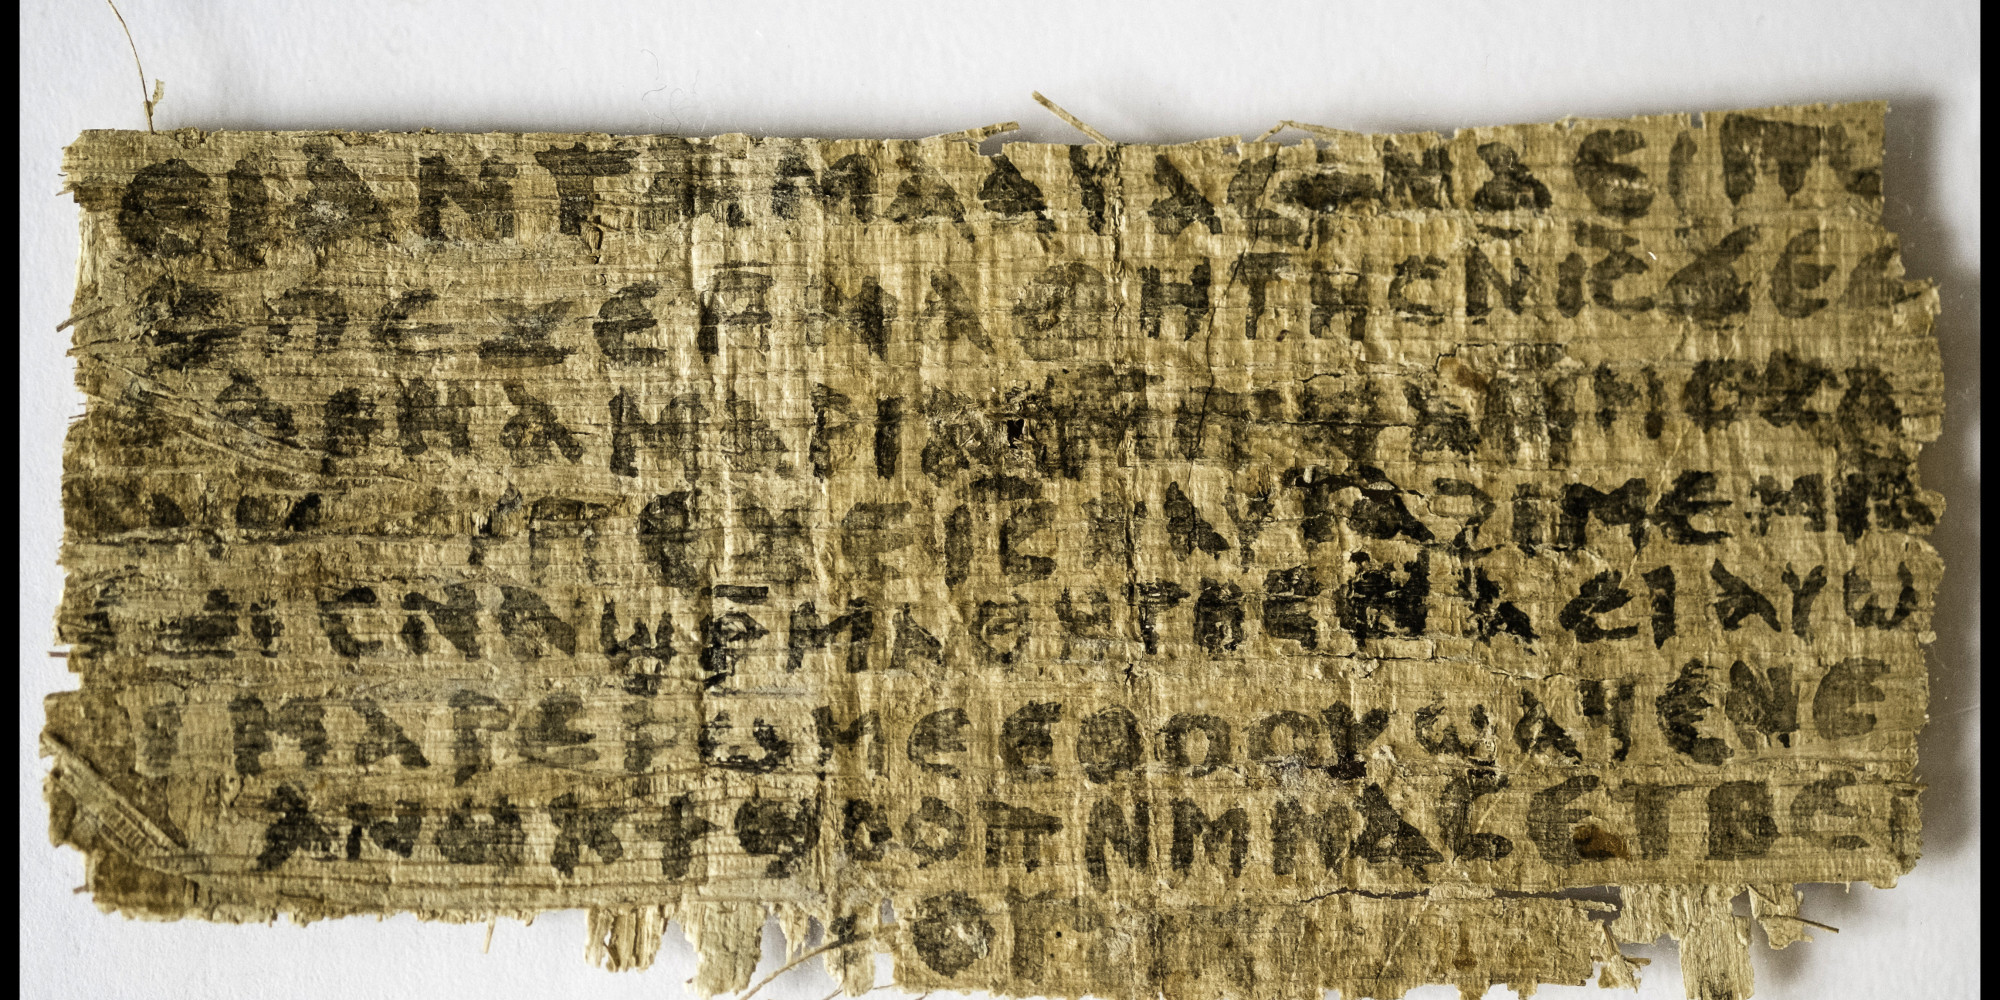 ⲉⲓ ⲁⲛ ⲧⲁⲙⲁⲁⲩ ⲁⲥϯ ⲛⲁⲉⲓ ⲡ
ⲡⲉϫⲉ ⲙⲙⲁⲑⲏⲧⲏⲥ ⲛⲓ̅ⲥ̅ ϫⲉ ⲥ
ⲁⲣⲛⲁ ⲙⲁⲣⲓⲁⲙ
ⲡⲉϫⲉ ⲓ̅ⲥ̅ ⲛⲁⲩ ⲧⲁϩⲓⲙⲉ ⲙⲛ
ⲥⲛⲁϣⲣ̅ⲙⲁⲑⲏⲧⲏⲥ ⲛⲁⲉⲓ ⲁⲩⲱ
ⲙⲁⲣⲉⲣⲱⲙⲉ ⲉⲑⲟⲟⲩ ϣⲁϥⲉ ⲛⲉ
ⲁⲛⲟⲕ ϯϣⲟⲟⲡ ⲛⲙⲙⲁⲥ ⲉⲧⲃⲉ